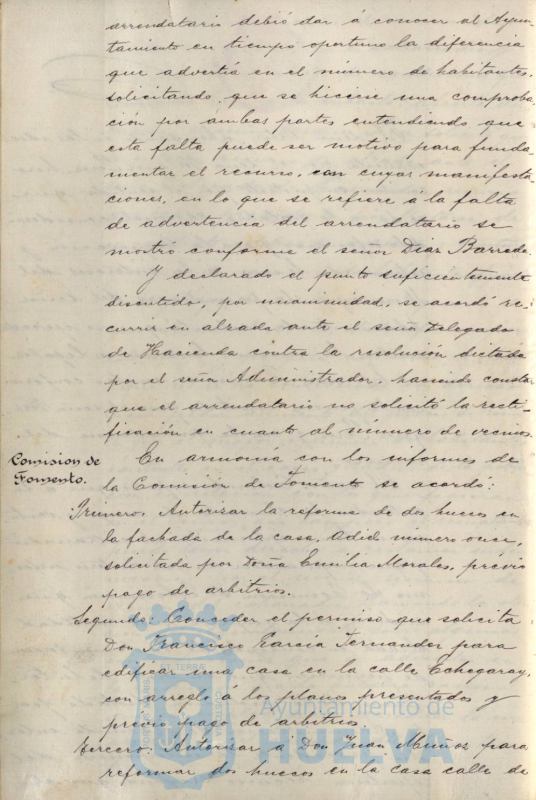 arrendatario debió dar á conocer al Ayun-
tamiento en tiempo oportuno la diferencia
que advertía en el número de habitantes,
solicitando que se hiciese una comproba-
ción por ambas partes entendiendo que
esta falta puede ser motivo para funda-
mentar el recurso, con cuyas manifesta-
ciones, en lo que se refiere á la falta
de advertencia del arrendatario se
mostró conforme el señor Diaz Barreda.
Y declarado el punto suficientemente
discutido, por unanimidad, se acordó re-
currir en alzada ante el señor Delegado
de Hacienda contra la resolución dictada
por el señor Administrador, haciendo constar
que el arrendatario no solicitó la recti-
ficación en cuanto al número de vecinos.
Comision de
Fomento.
En armonía con los informes de
la Comisión de Fomento se acordó:
Primero: Autorizar la reforma de dos huecos en
la fachada de la casa, número once,
solicitada por Doña Emilia Morales, prévio
pago de arbitrios.
Segundo: Conceder el permiso que solicita
Don Francisco García Fernandez para
edificar una casa en la calle Echegaray,
con arreglo á los planos presentados y
prévio pago de arbitrios.
Tercero: Autorizar á Don Juan Muñoz para
reformar dos huecos en la casa calle de
Ayuntamiento de
HUELVA